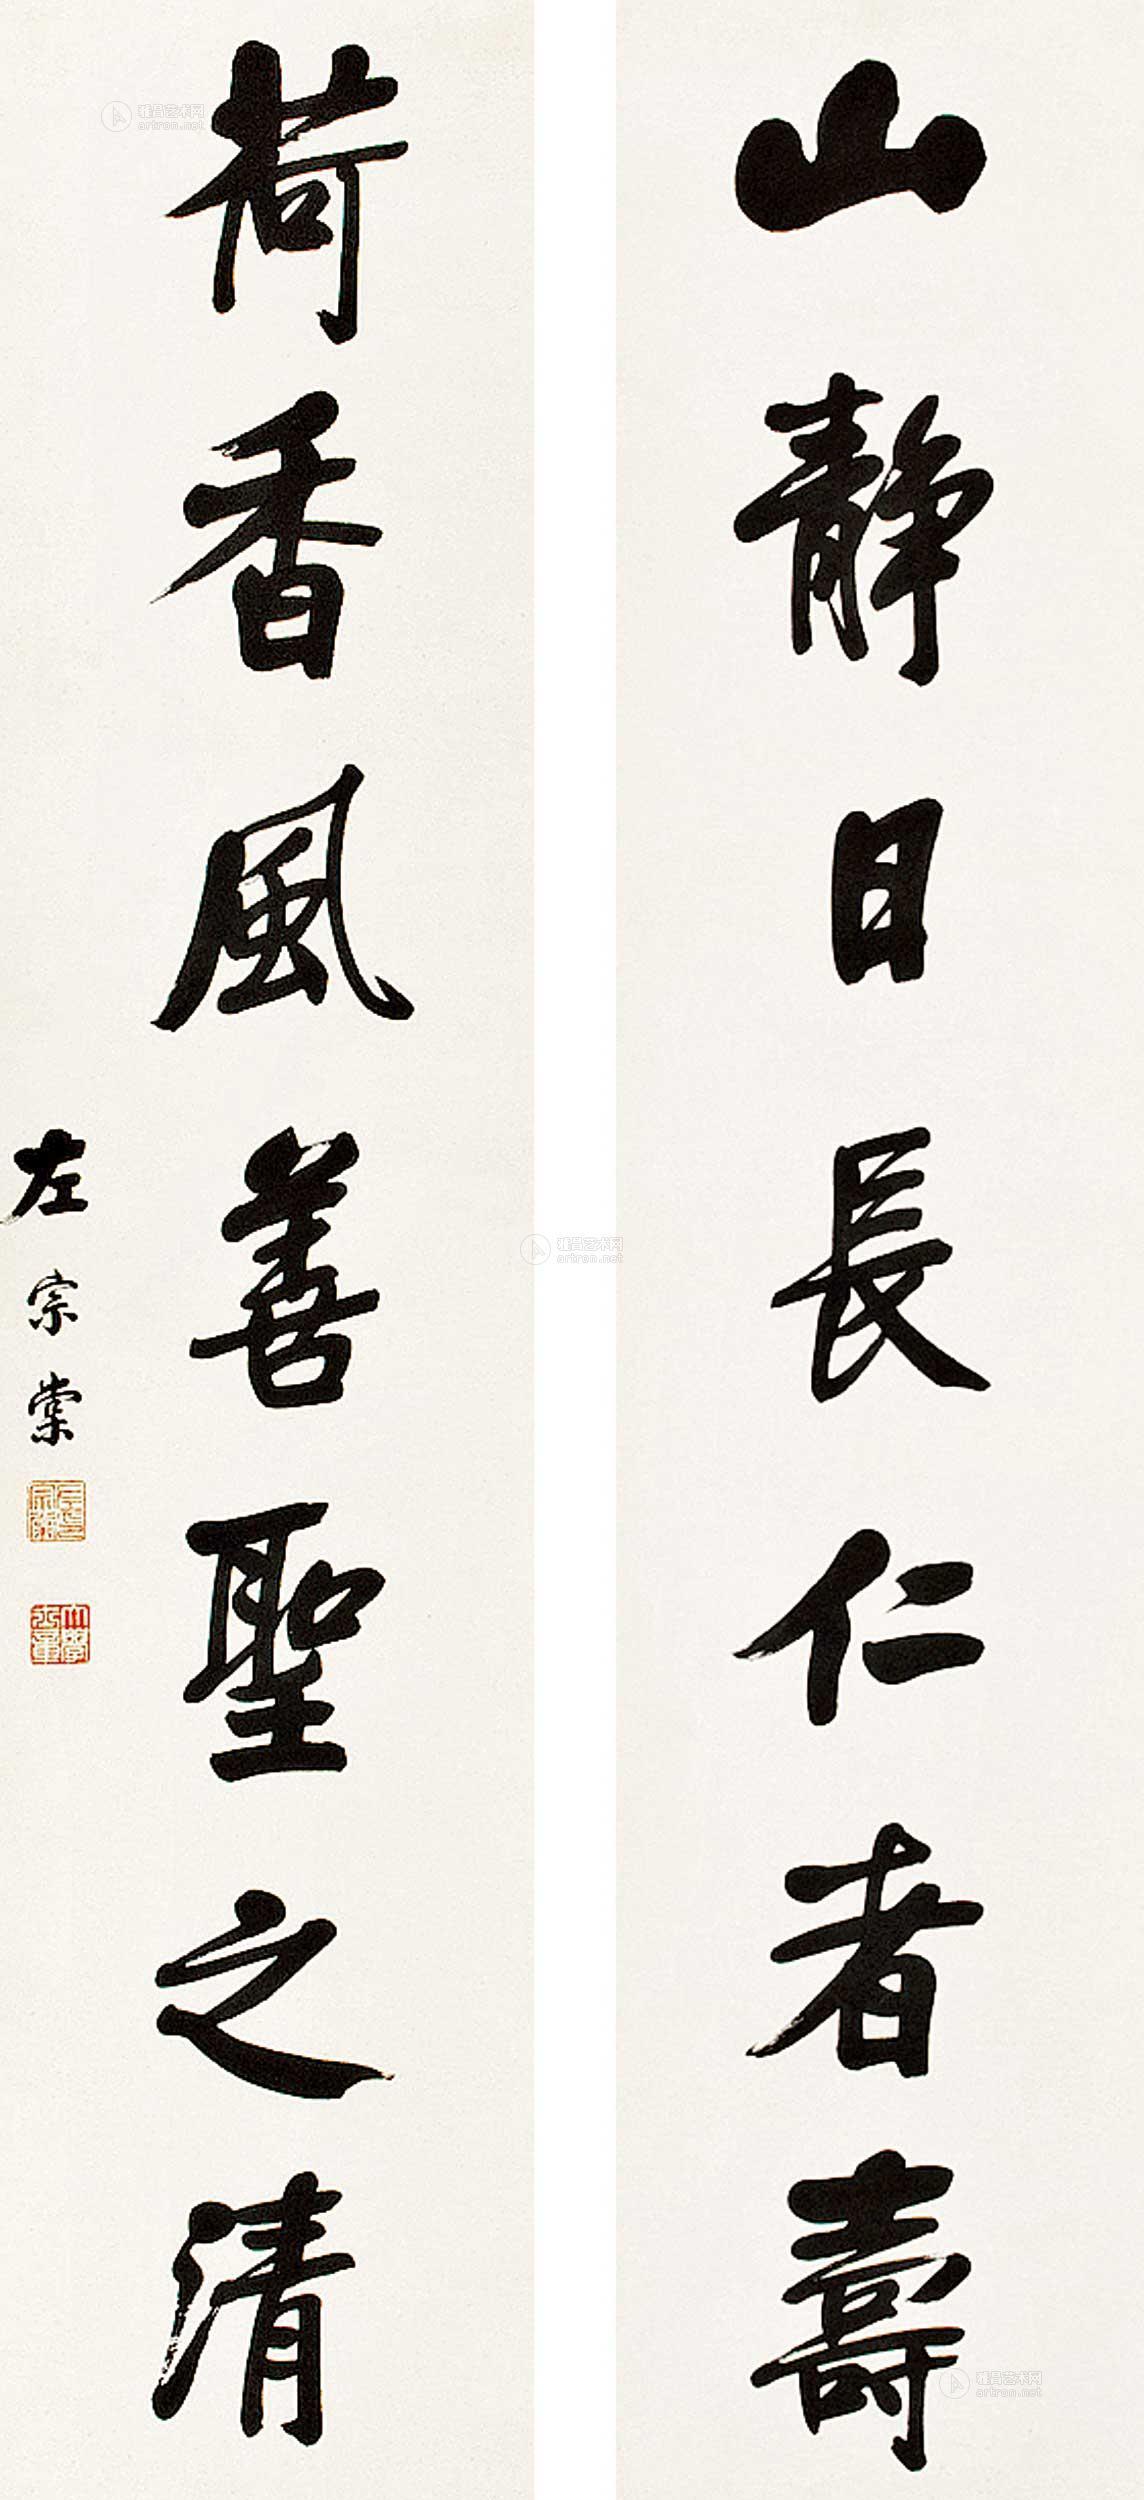 山靜日長仁者壽
荷香風善聖之清
左宗棠
雅昌艺术网
artron.net
雅昌艺术网
artron.net
雅昌艺术网
artron.net